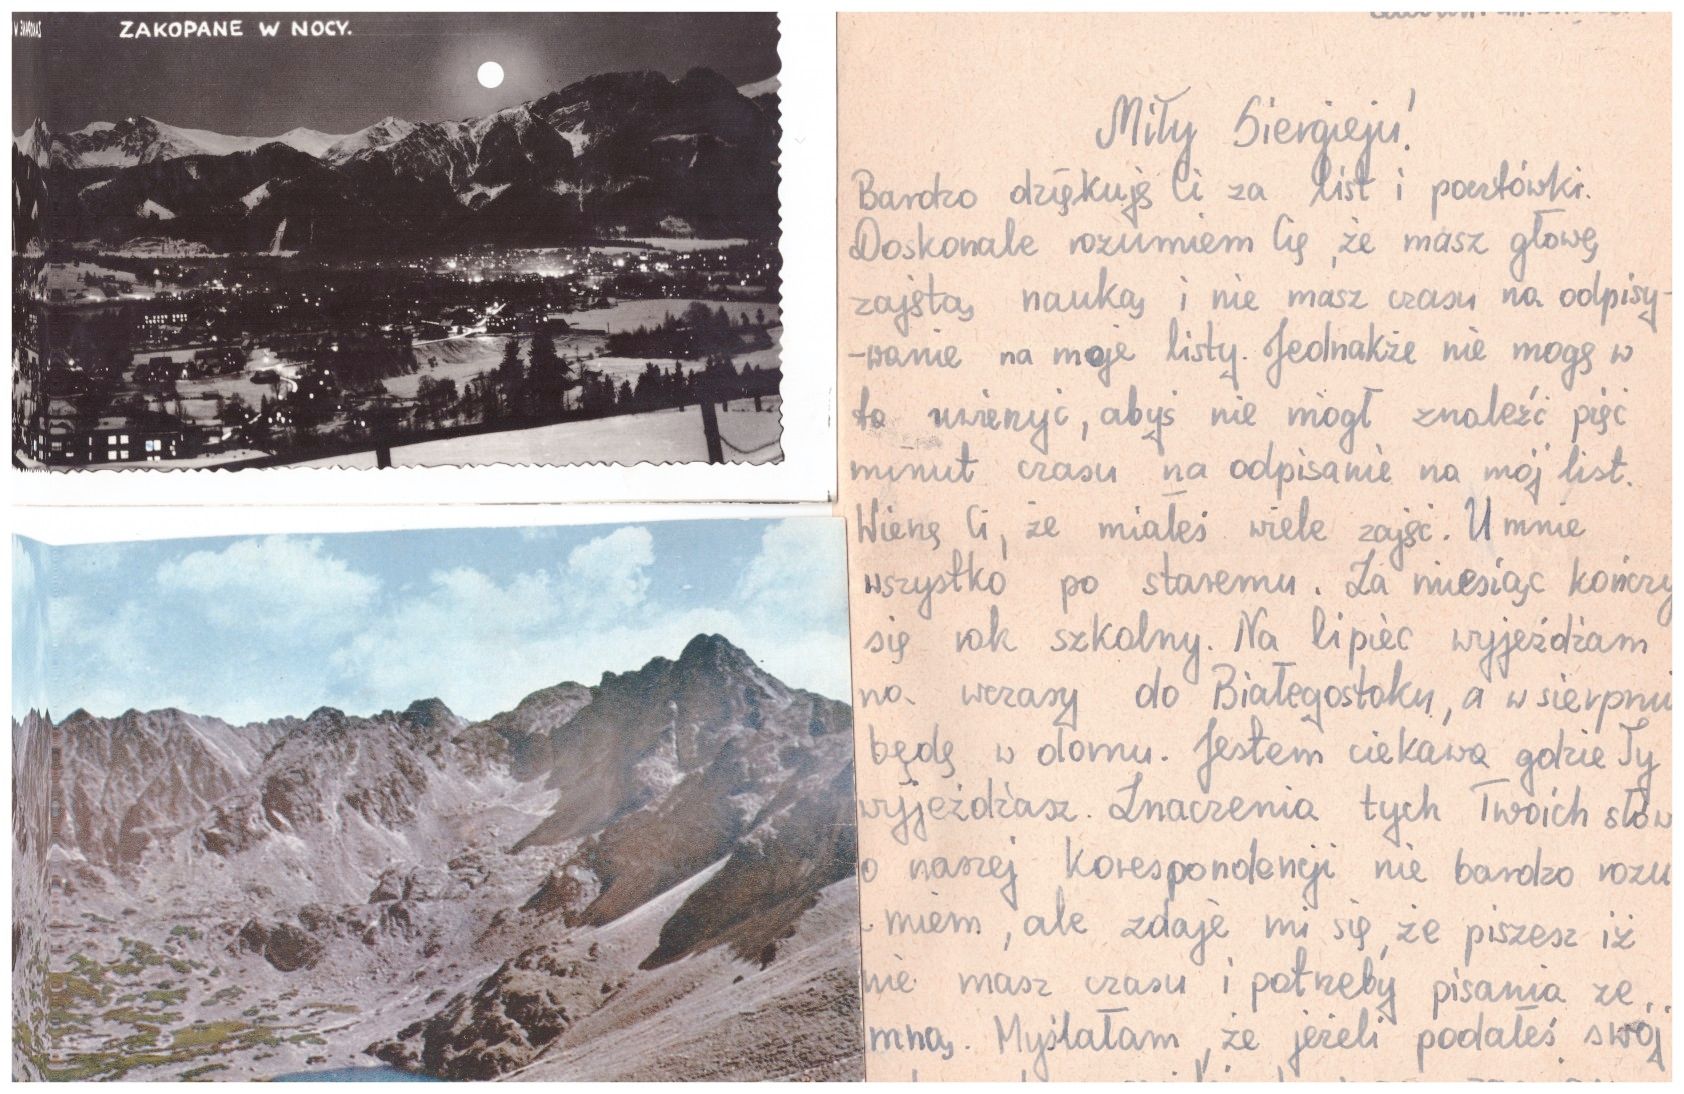 ZAKOPANE W NOCY.
Miły Siergieju!
Bardzo dziękuję Ci za list i pocztówki.
Doskonale rozumiem Cię, że masz głowę
zajętą nauką i nie masz czasu na odpisy-
-wanie na moje listy. Jednakże nie mogę w
to uwierzyć, abyś nie mógł znaleźć pięć
minut czasu na odpisanie na mój list.
Wierzę Ci, że miałeś wiele zajęć. U mnie
wszystko po staremu. Za miesiąc kończy
się rok szkolny. Na lipiec wyjeżdżam
na wczasy do Białegostoku, a w sierpniu
będę w domu. Jestem ciekawa gdzie Ty
wyjeżdżasz. Znaczenia tych Twoich słów
o naszej korespondencji nie bardzo rozu
- miem, ale zdaje mi się, że piszesz iż
nie masz czasu i potrzeby pisania ze
mną. Myślałam, że jeżeli podałeś swój